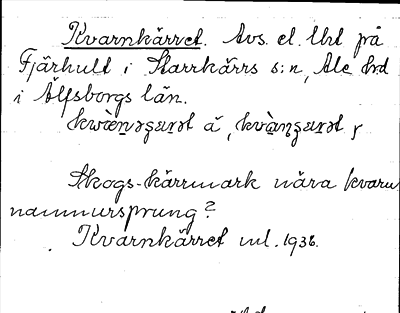 Kvarnkärret. Avs. el. lht på
Fjärhult i Starrkärrs s:n, Ale hd
i Älfsborgs län.
Skogs-kärrmark nära kvarn
namnursprung?
Kvarnkärret ml. 1936.